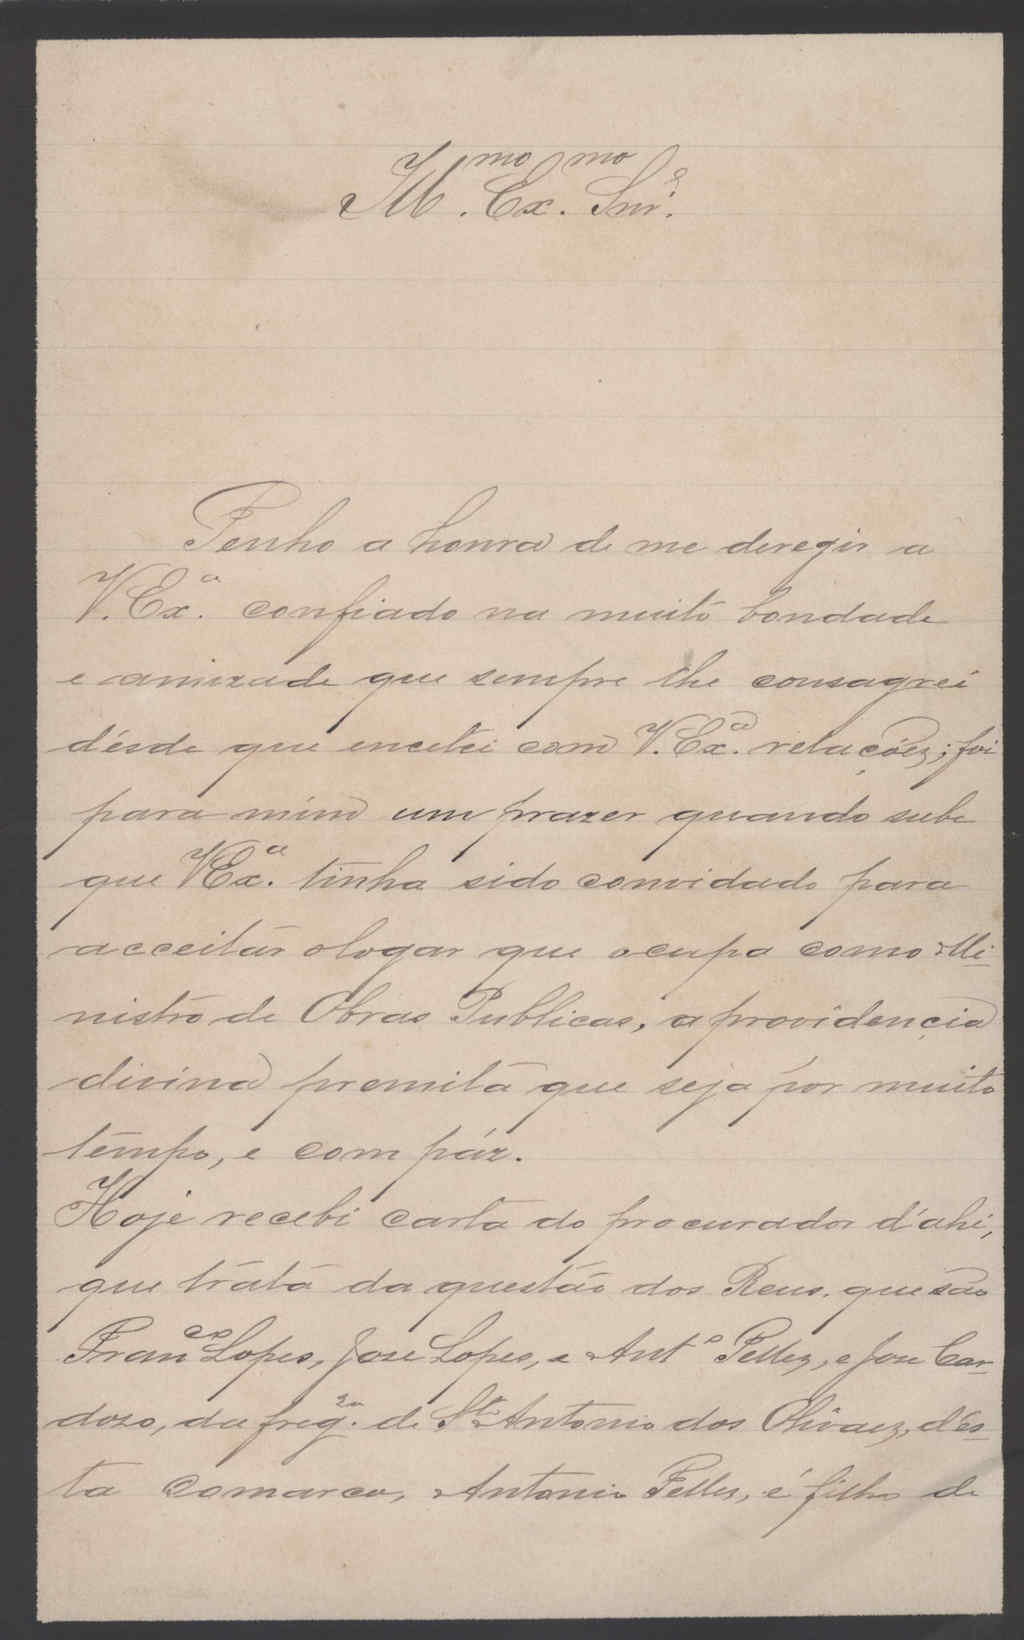 Ill.mo Ex.mo Snr.
Tenho a honra de me deregir a
V. Ex.a confiado na muito bondade
e amizade que sempre lhe consagrei
désde que encetei com V. Ex.a relações; foi
para mim um prazer quando sube
que V Ex.a tinha sido convidado para
acceitar o logar que ocupa como Mi-
nistro de Obras Publicas, a providencia
divina premita que seja por muito
tempo, e com páz.
Hoje recebi carta do procurador d'ahi,
que trata da questão dos Reus, que são
Fran.co Lopes, Jose Lopes, e Ant.o Telles, e Jose Car-
dozo, da freg.za de St.o Antonio dos Olivaes, d'es-
ta comarca, Antonio Telles, é filho de